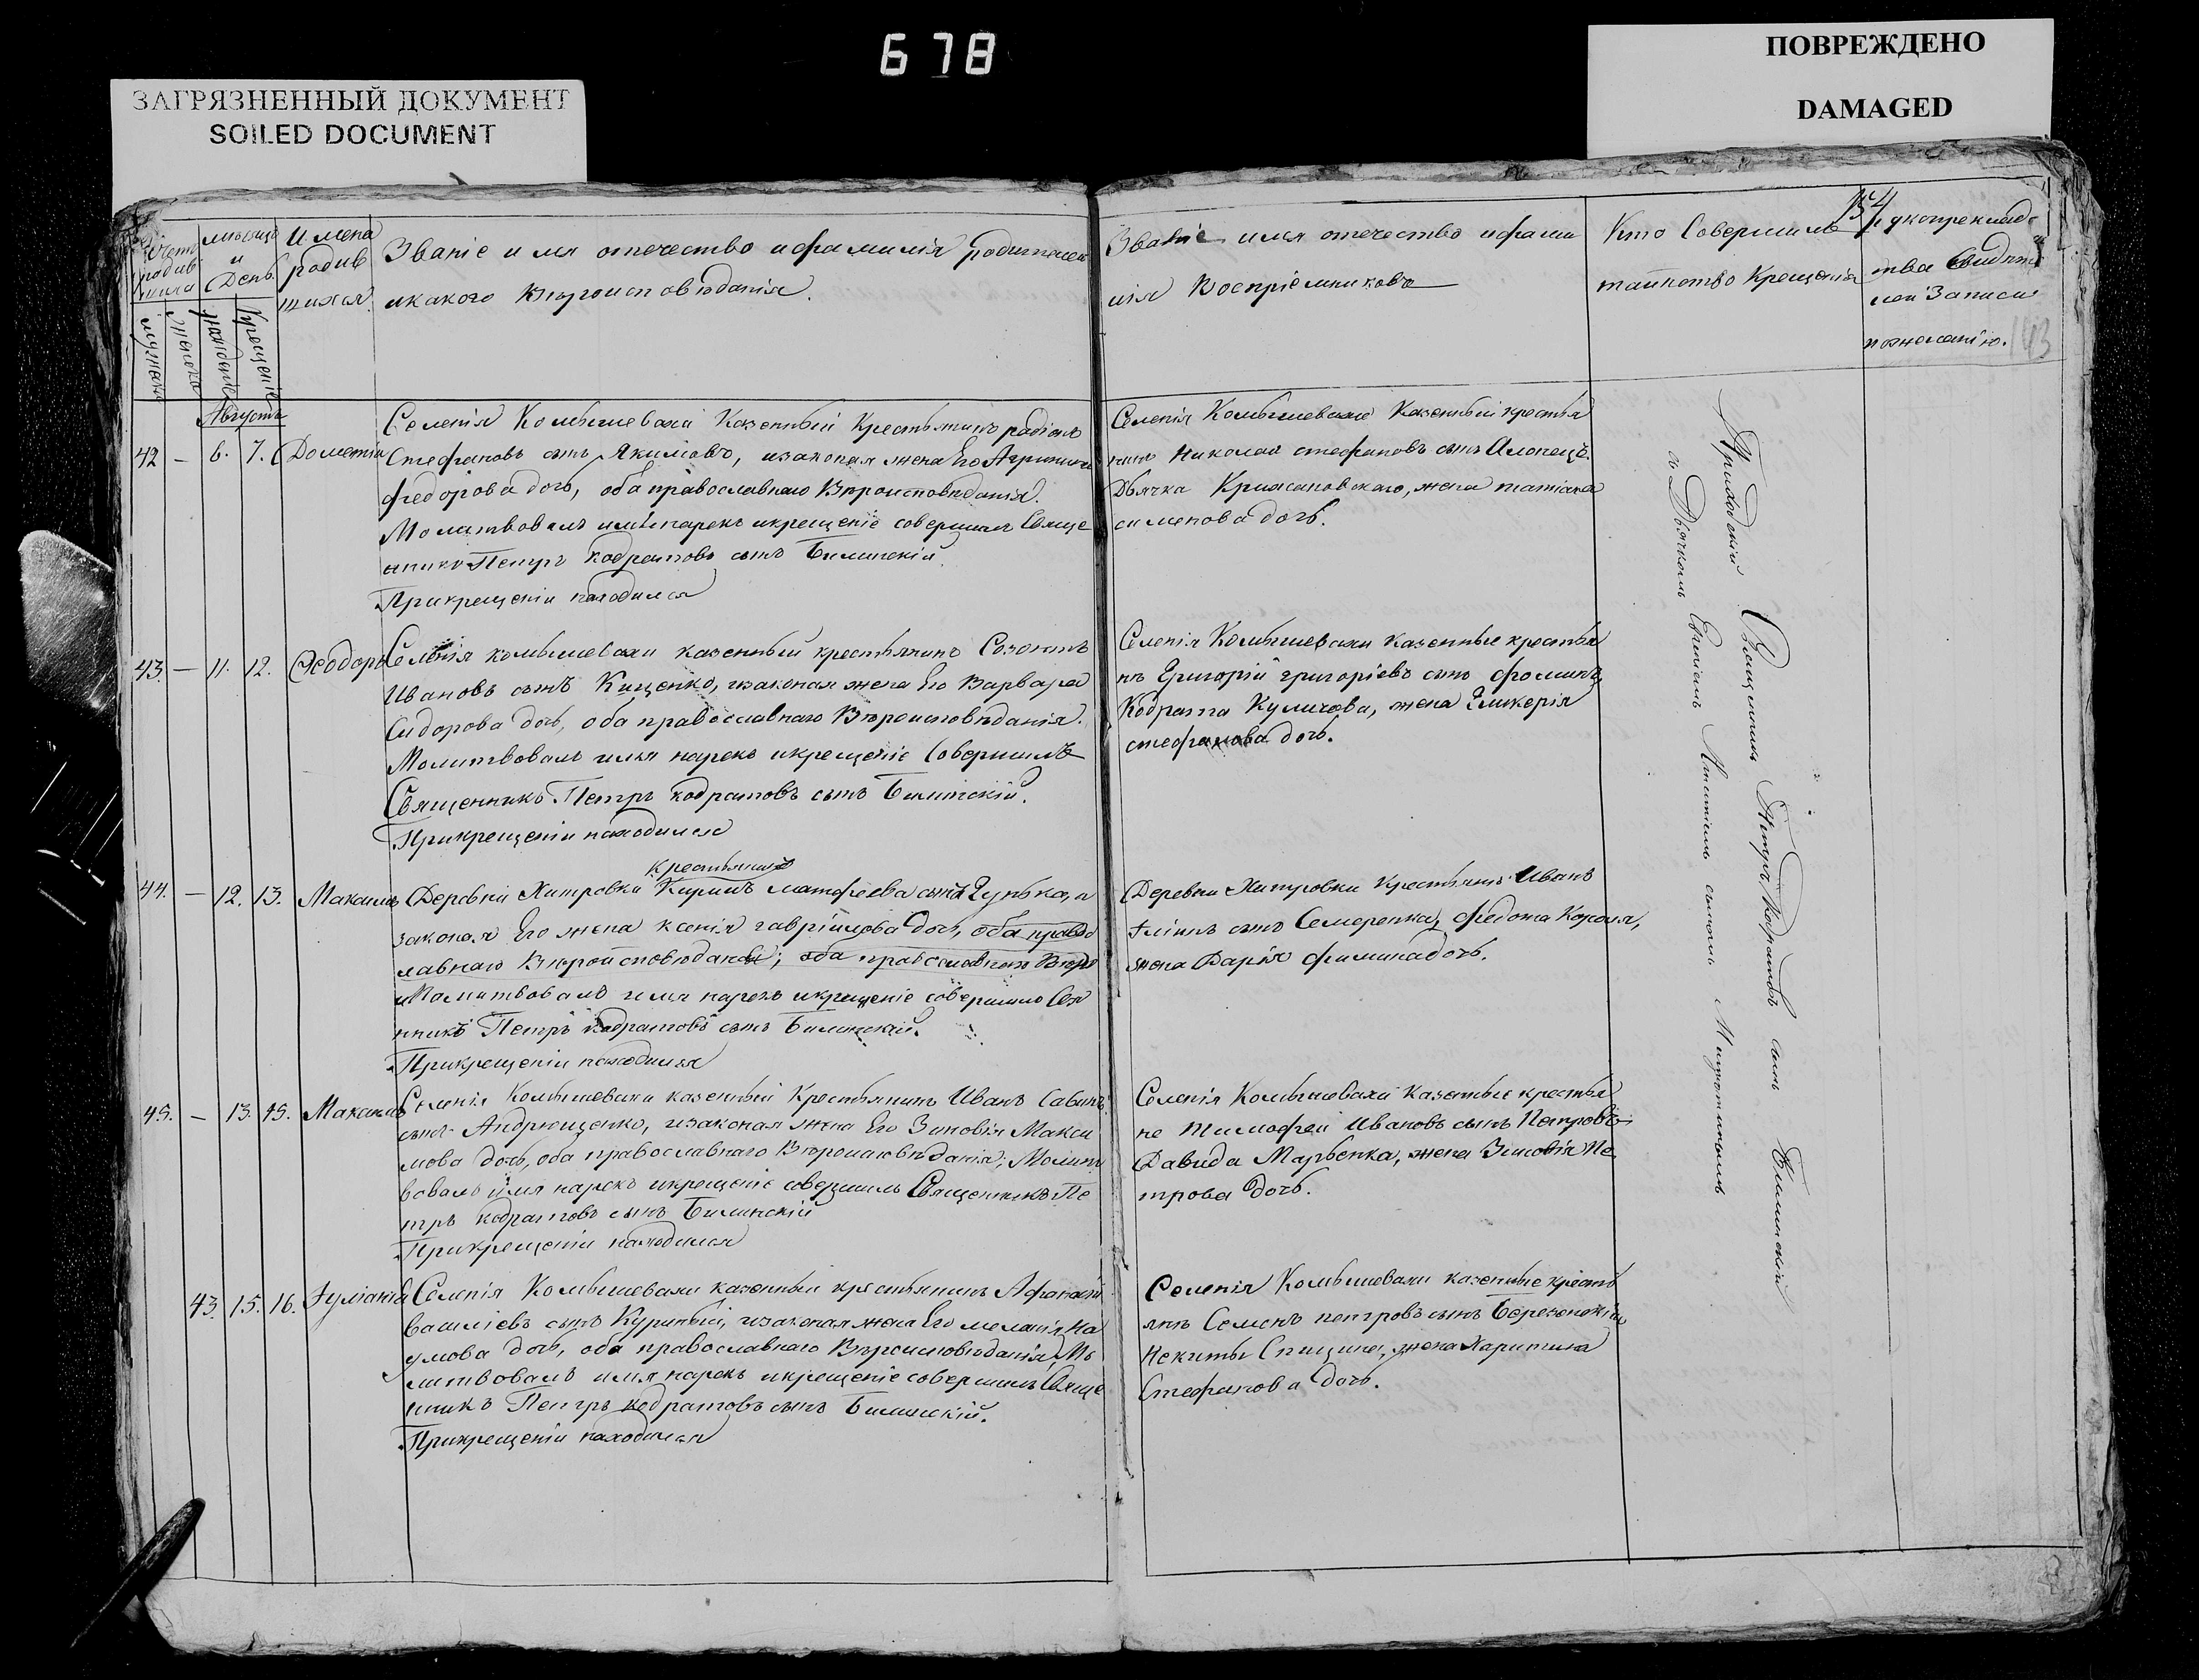 678
ЗАГРЯЗНЕННЫЙ ДОКУМЕНТ
SOILED DOCUMENT
ПОВРЕЖДЕНО
DAMAGED
154
143
Счетъ родив
мѣсяцъ и День
Имена родив шихся
Званіе имя отечество ифамилія родителей
икакого Вѣроисповѣданія.
мужеска
женска
рожденіе
Крещеніе
Званіе имя отечество ифами
лія Воспріемниковъ
Кто Совершилъ
таинство Крещенія
рукоприклад
ства Свидѣте
лей Записи
пожеланію.
Августъ
42 — 6. 7. Дометій
Селенія Комышевахи Казенный Крестьянинъ радіонъ
Стефановъ сынъ Якимовъ, изаконая жена Его Агрипина
федорова дочь, оба православнаго Вѣроисповѣданія.
Молитвовалъ имя нарекъ икрещеніе совершилъ Свяще
нникъ Петръ кодратовъ сынъ Билинскій.
Прикрещеніи находился
Селенія Комышевахи Казенный крестья
нинъ Николай стефановъ сынъ
Дьячка Крижановскаго, жена татіана
сименова дочь.
43. — 11. 12. Феодоръ
Селенія комышевахи казенный крестьянинъ Созонтъ
Ивановъ сынъ Кищенко, изаконая жена Его Варвара
Сидорова дочь, оба православнаго Вѣроисповѣданія.
Молитвовалъ имя нарекъ икрещеніе Совершилъ
Священникъ Петръ кодратовъ сынъ Билинскій.
Прикрещеніи находился
Селенія Комышевахи казенные крестья
нъ Григорій григоріевъ сынъ фоминъ
Кодрата Куличова, жена Гликерія
стефанова дочь.
44. — 12. 13. Максимъ
крестьянинъ
Деревни Хитровки Кирилъ матфѣева сынъ Гунька, и
законая Его жена ксенія гавріилова дочь, оба правос
лавнаго Вѣроисповѣданія; оба православнаго Вѣро
Молитвовалъ имя нарекъ икрещеніе совершилъ Свя
нникъ Петръ кодратовъ сынъ Билинскій.
Прикрещеніи находился
Деревни Хитровки Крестьянъ Иванъ
сынъ Семеренка, федота Короля,
жена Дарія дочь.
45. — 13. 15. Максимъ
Селенія Комышевахи казенный Крестьянинъ Иванъ Савинъ
сынъ Андрющенко, изаконая жена Его Зиновія Макси
мова дочь, оба православнаго Вѣроисповѣданія; Молит
вовалъ имя нарекъ икрещеніе совершилъ Священникъ Пе
тръ кодратовъ сынъ Билинскій
Прикрещеніи находился
Селенія Комышевахи Казенные крестья
не Тимофей Ивановъ сынъ Петровъ
Давида Марченка, жена Зиновія Пе
трова дочь.
43. 15. 16. Іуліанія
Селенія Комышевахи казенный крестьянинъ Афанасій
Василіевъ сынъ Куриный, изаконая жена Его меланія На
умова дочь, оба православнаго Вѣроисповѣданія, Мо
литвовалъ имя нарекъ икрещеніе совершилъ Свяще
нникъ Петръ кодратовъ сынъ Билинскій.
Прикрещеніи находился
Селенія Комышевахи казенные кресть
янъ Семенъ петровъ сынъ
Некиты Спицина, жена Харитина
Стефанова дочь.
Приходскій Священникъ Петръ Кодратовъ сынъ Билинскій
съ Дьячкомъ